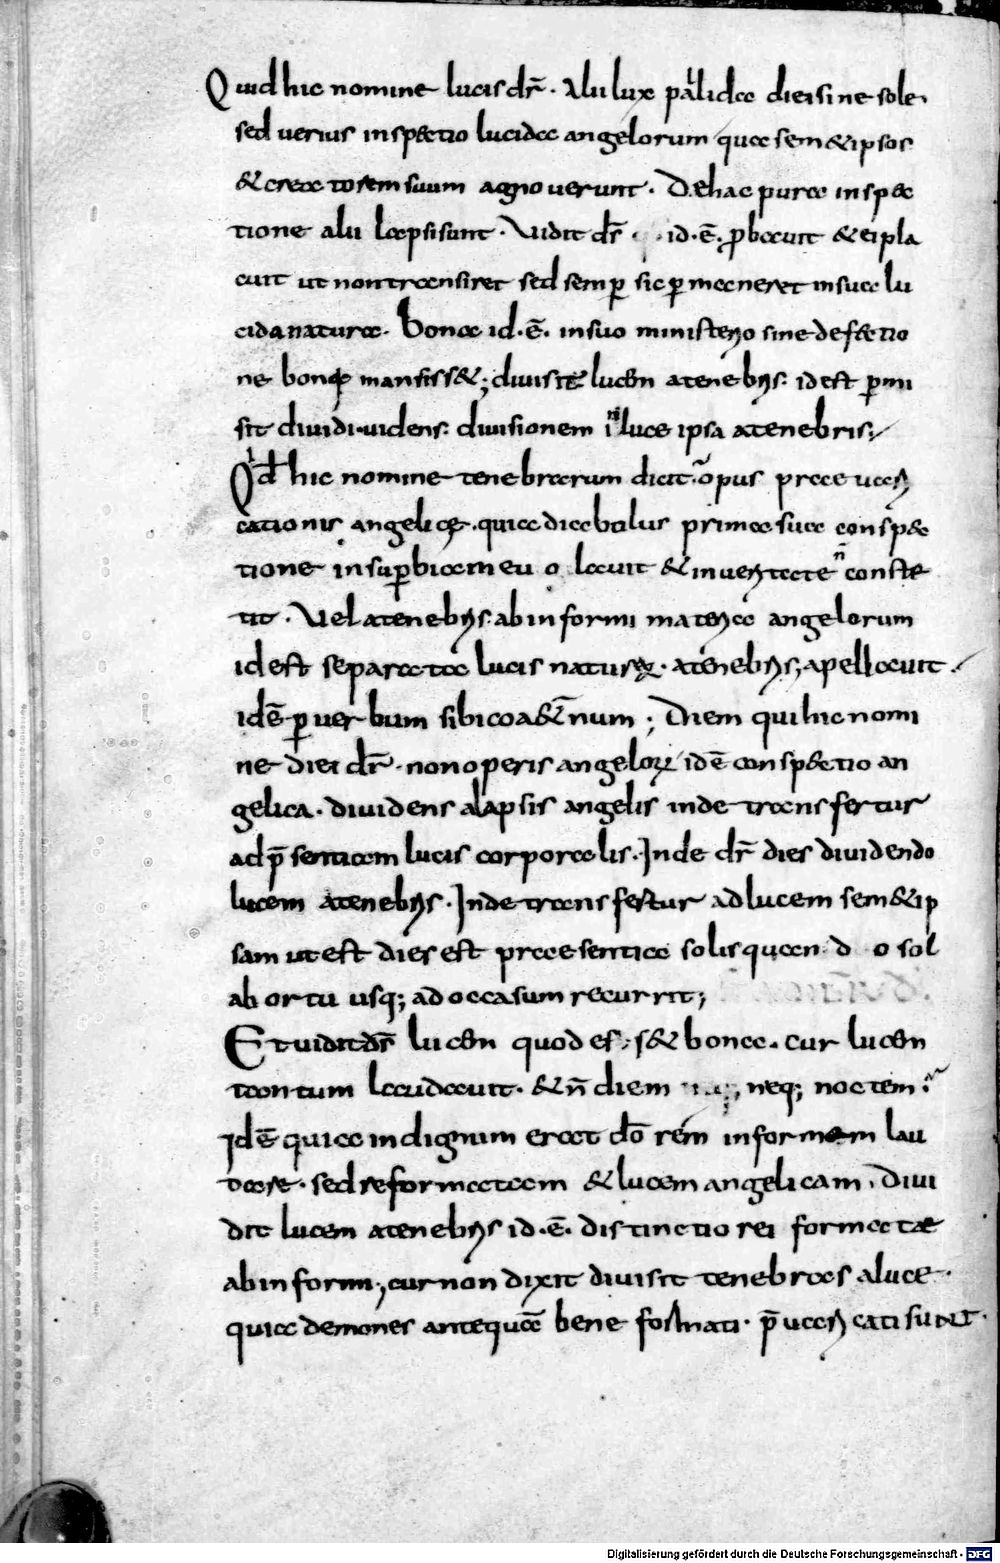 Quid hic nomine lucis dr̄. Alii lux pallida diei sine sole
sed verius inspectio lucida angelorum qua semet ipsos
& creatorem suum agnoverunt. De hac pura inspec
tione alii lapsi sunt. Vidit dr̄ id. ē. probavit & ei pla
cuit ut non transiret sed semꝑ sic ꝑmaneret in sua lu
cida natura. bona id. ē. in suo ministerio sine defectio
ne bonoꝝ mansisset; divisitꝗ lucem a tenebris. id est ꝑmi
sit dividi videns divisionem in luce ipsa a tenebris;
Qd hic nomine tenebrarum dicit opus praevari
cationis angelicę. quia diabolus prima sua conspec
tione in suꝑbiam evolavit & in veritate ñ conste
tit. Vel a tenebris ab informi materia angelorum
id est separata lucis naturę. a tenebris; apellavit
id ē ꝑ verbum sibi coaet̄num; Diem qui hic nomi
ne diei dr̄. non operis angeloꝝ id ē conspectio an
gelica. dividens a lapsis angelis inde transfertur
ad p̄sentiam lucis corporalis. Inde dr̄ dies dividendo
lucem a tenebris. Inde transfertur ad lucem semet ip
sam ut est dies est praesentia solis quando sol
ab ortu usq; ad occasum recurrit;
Et vidit ds̄ lucem quod esset bona. cur lucem
tantum laudavit. & ñ diem neq; noctem.
Id ē quia indignum erat dō rem informem lau
dare. sed reformatam & lucem angelicam. Divi
dit lucem a tenebris id. ē. distinctio rei formatae
ab informi; cur non dixit divisit tenebras a luce.
quia demones antequā bene formati. p̄varicati sunt.
Digitalisierung gefördert durch die Deutsche Forschungsgemeinschaft - DFG